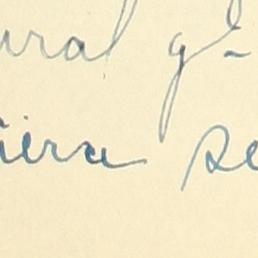 ural g-
iera se